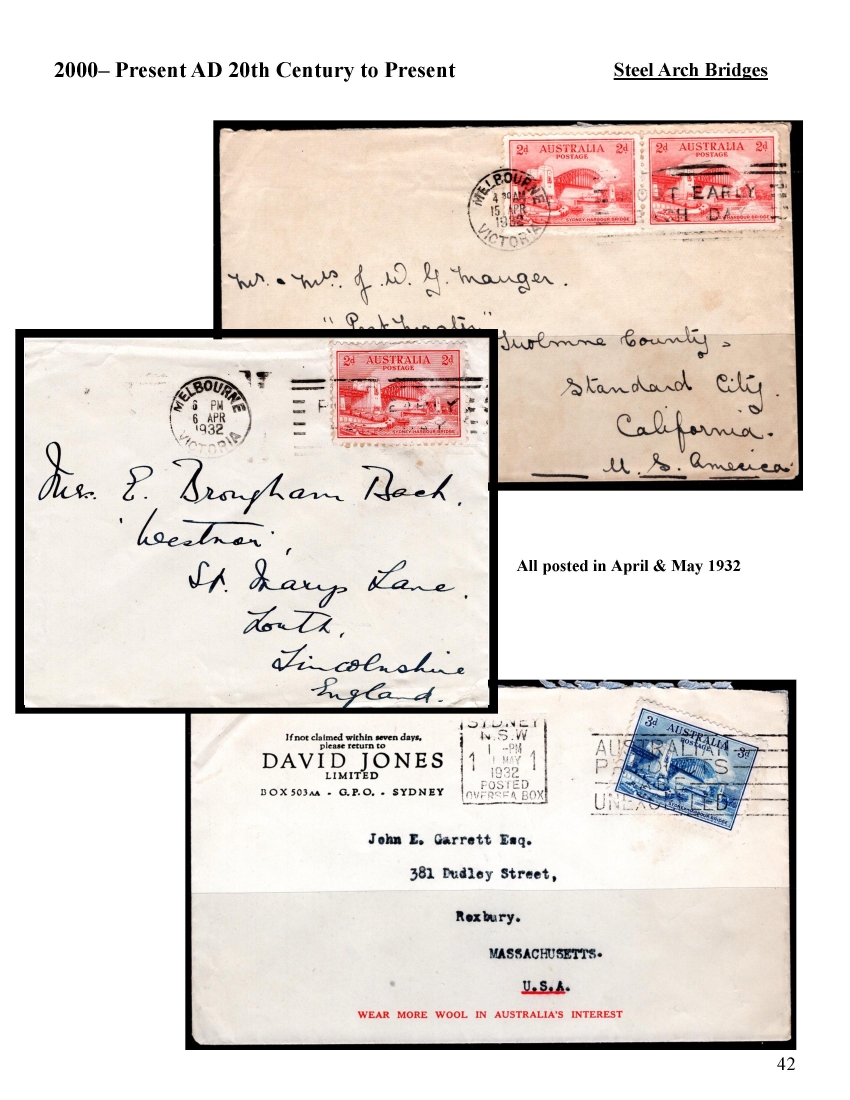 2000– Present AD 20th Century to Present
Steel Arch Bridges
2d AUSTRALIA 2d
POSTAGE
SYDNEY HARBOUR BRIDGE
2d AUSTRALIA 2d
POSTAGE
SYDNEY HARBOUR BRIDGE
MELBOURNE
4 30 AM
15 APR
1932
VICTORIA
T EARLY
H DA
Mr. & Mrs. J. W. G. Mauger.
"Post Master"
Tuolmne County,
Standard City.
California.
U. S. America.
2d AUSTRALIA 2d
POSTAGE
SYDNEY HARBOUR BRIDGE
MELBOURNE
6 PM
6 APR
1932
VICTORIA
Mrs. E. Brougham Back,
'Westnor',
St. Marys Lane.
Louth,
Lincolnshire
England.
All posted in April & May 1932
If not claimed within seven days,
please return to
DAVID JONES
LIMITED
BOX 503AA - G.P.O. - SYDNEY
SYDNEY
N.S.W
1 -PM
1 1 MAY 1
1932
POSTED
OVERSEA BOX
3d AUSTRALIA 3d
POSTAGE
SYDNEY HARBOUR BRIDGE
AUSTRALIAN
UNEXCELLED
John E. Garrett Esq.
381 Dudley Street,
Roxbury.
MASSACHUSETTS.
U.S.A.
WEAR MORE WOOL IN AUSTRALIA'S INTEREST
42